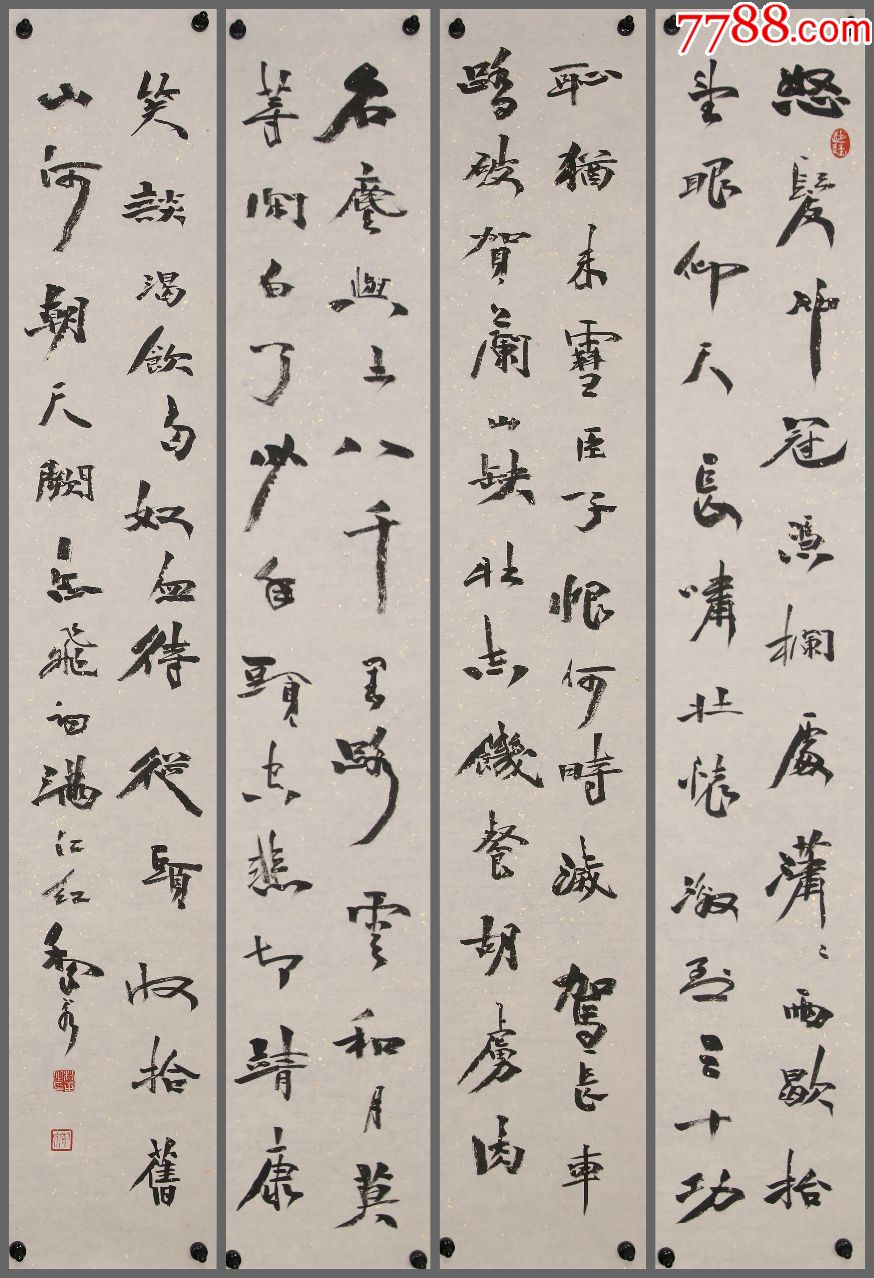 7788.com
怒髮沖冠憑欄處瀟瀟雨歇抬
望眼仰天長嘯壯懷激烈三十功
名塵與土八千里路雲和月莫
等閑白了少年頭空悲切靖康
恥猶未雪臣子恨何時滅駕長車
踏破賀蘭山缺壯志饑餐胡虜肉
笑談渴飲匈奴血待從頭收拾舊
山河朝天闕岳飛詞滿江紅